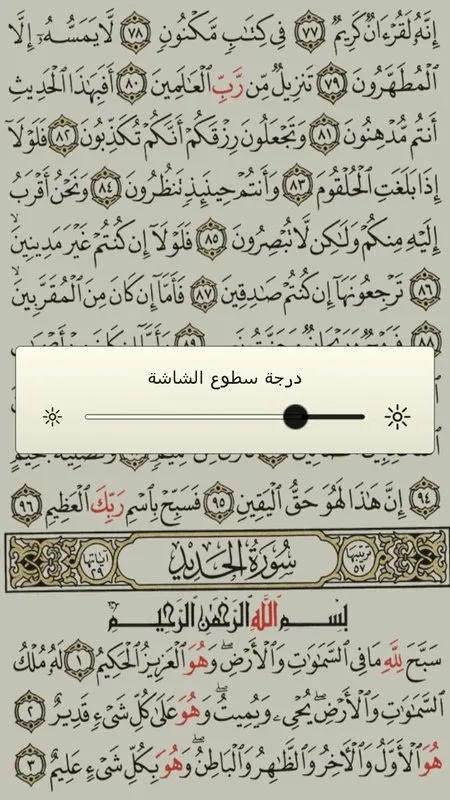 إِنَّهُۥ لَقُرْءَانٌ كَرِيمٌ ٧٧ فِى كِتَـٰبٍ مَّكْنُونٍ ٧٨ لَّا يَمَسُّهُۥٓ إِلَّا
ٱلْمُطَهَّرُونَ ٧٩ تَنزِيلٌ مِّن رَّبِّ ٱلْعَـٰلَمِينَ ٨٠ أَفَبِهَـٰذَا ٱلْحَدِيثِ
أَنتُم مُّدْهِنُونَ ٨١ وَتَجْعَلُونَ رِزْقَكُمْ أَنَّكُمْ تُكَذِّبُونَ ٨٢ فَلَوْلَآ
إِذَا بَلَغَتِ ٱلْحُلْقُومَ ٨٣ وَأَنتُمْ حِينَئِذٍ تَنظُرُونَ ٨٤ وَنَحْنُ أَقْرَبُ
إِلَيْهِ مِنكُمْ وَلَـٰكِن لَّا تُبْصِرُونَ ٨٥ فَلَوْلَآ إِن كُنتُمْ غَيْرَ مَدِينِينَ
٨٦ تَرْجِعُونَهَآ إِن كُنتُمْ صَـٰدِقِينَ ٨٧ فَأَمَّآ إِن كَانَ مِنَ ٱلْمُقَرَّبِينَ
٨٨
درجة سطوع الشاشة
٩٤ إِنَّ هَـٰذَا لَهُوَ حَقُّ ٱلْيَقِينِ ٩٥ فَسَبِّحْ بِٱسْمِ رَبِّكَ ٱلْعَظِيمِ ٩٦
ترتيبها ٥٧ سُورَةُ الحَدِيدِ آياتها ٢٩
بِسْمِ ٱللَّهِ ٱلرَّحْمَـٰنِ ٱلرَّحِيمِ
سَبَّحَ لِلَّهِ مَا فِى ٱلسَّمَـٰوَٰتِ وَٱلْأَرْضِ ۖ وَهُوَ ٱلْعَزِيزُ ٱلْحَكِيمُ ١ لَهُۥ مُلْكُ
ٱلسَّمَـٰوَٰتِ وَٱلْأَرْضِ ۖ يُحْىِۦ وَيُمِيتُ ۖ وَهُوَ عَلَىٰ كُلِّ شَىْءٍ قَدِيرٌ ٢
هُوَ ٱلْأَوَّلُ وَٱلْـَٔاخِرُ وَٱلظَّـٰهِرُ وَٱلْبَاطِنُ ۖ وَهُوَ بِكُلِّ شَىْءٍ عَلِيمٌ ٣